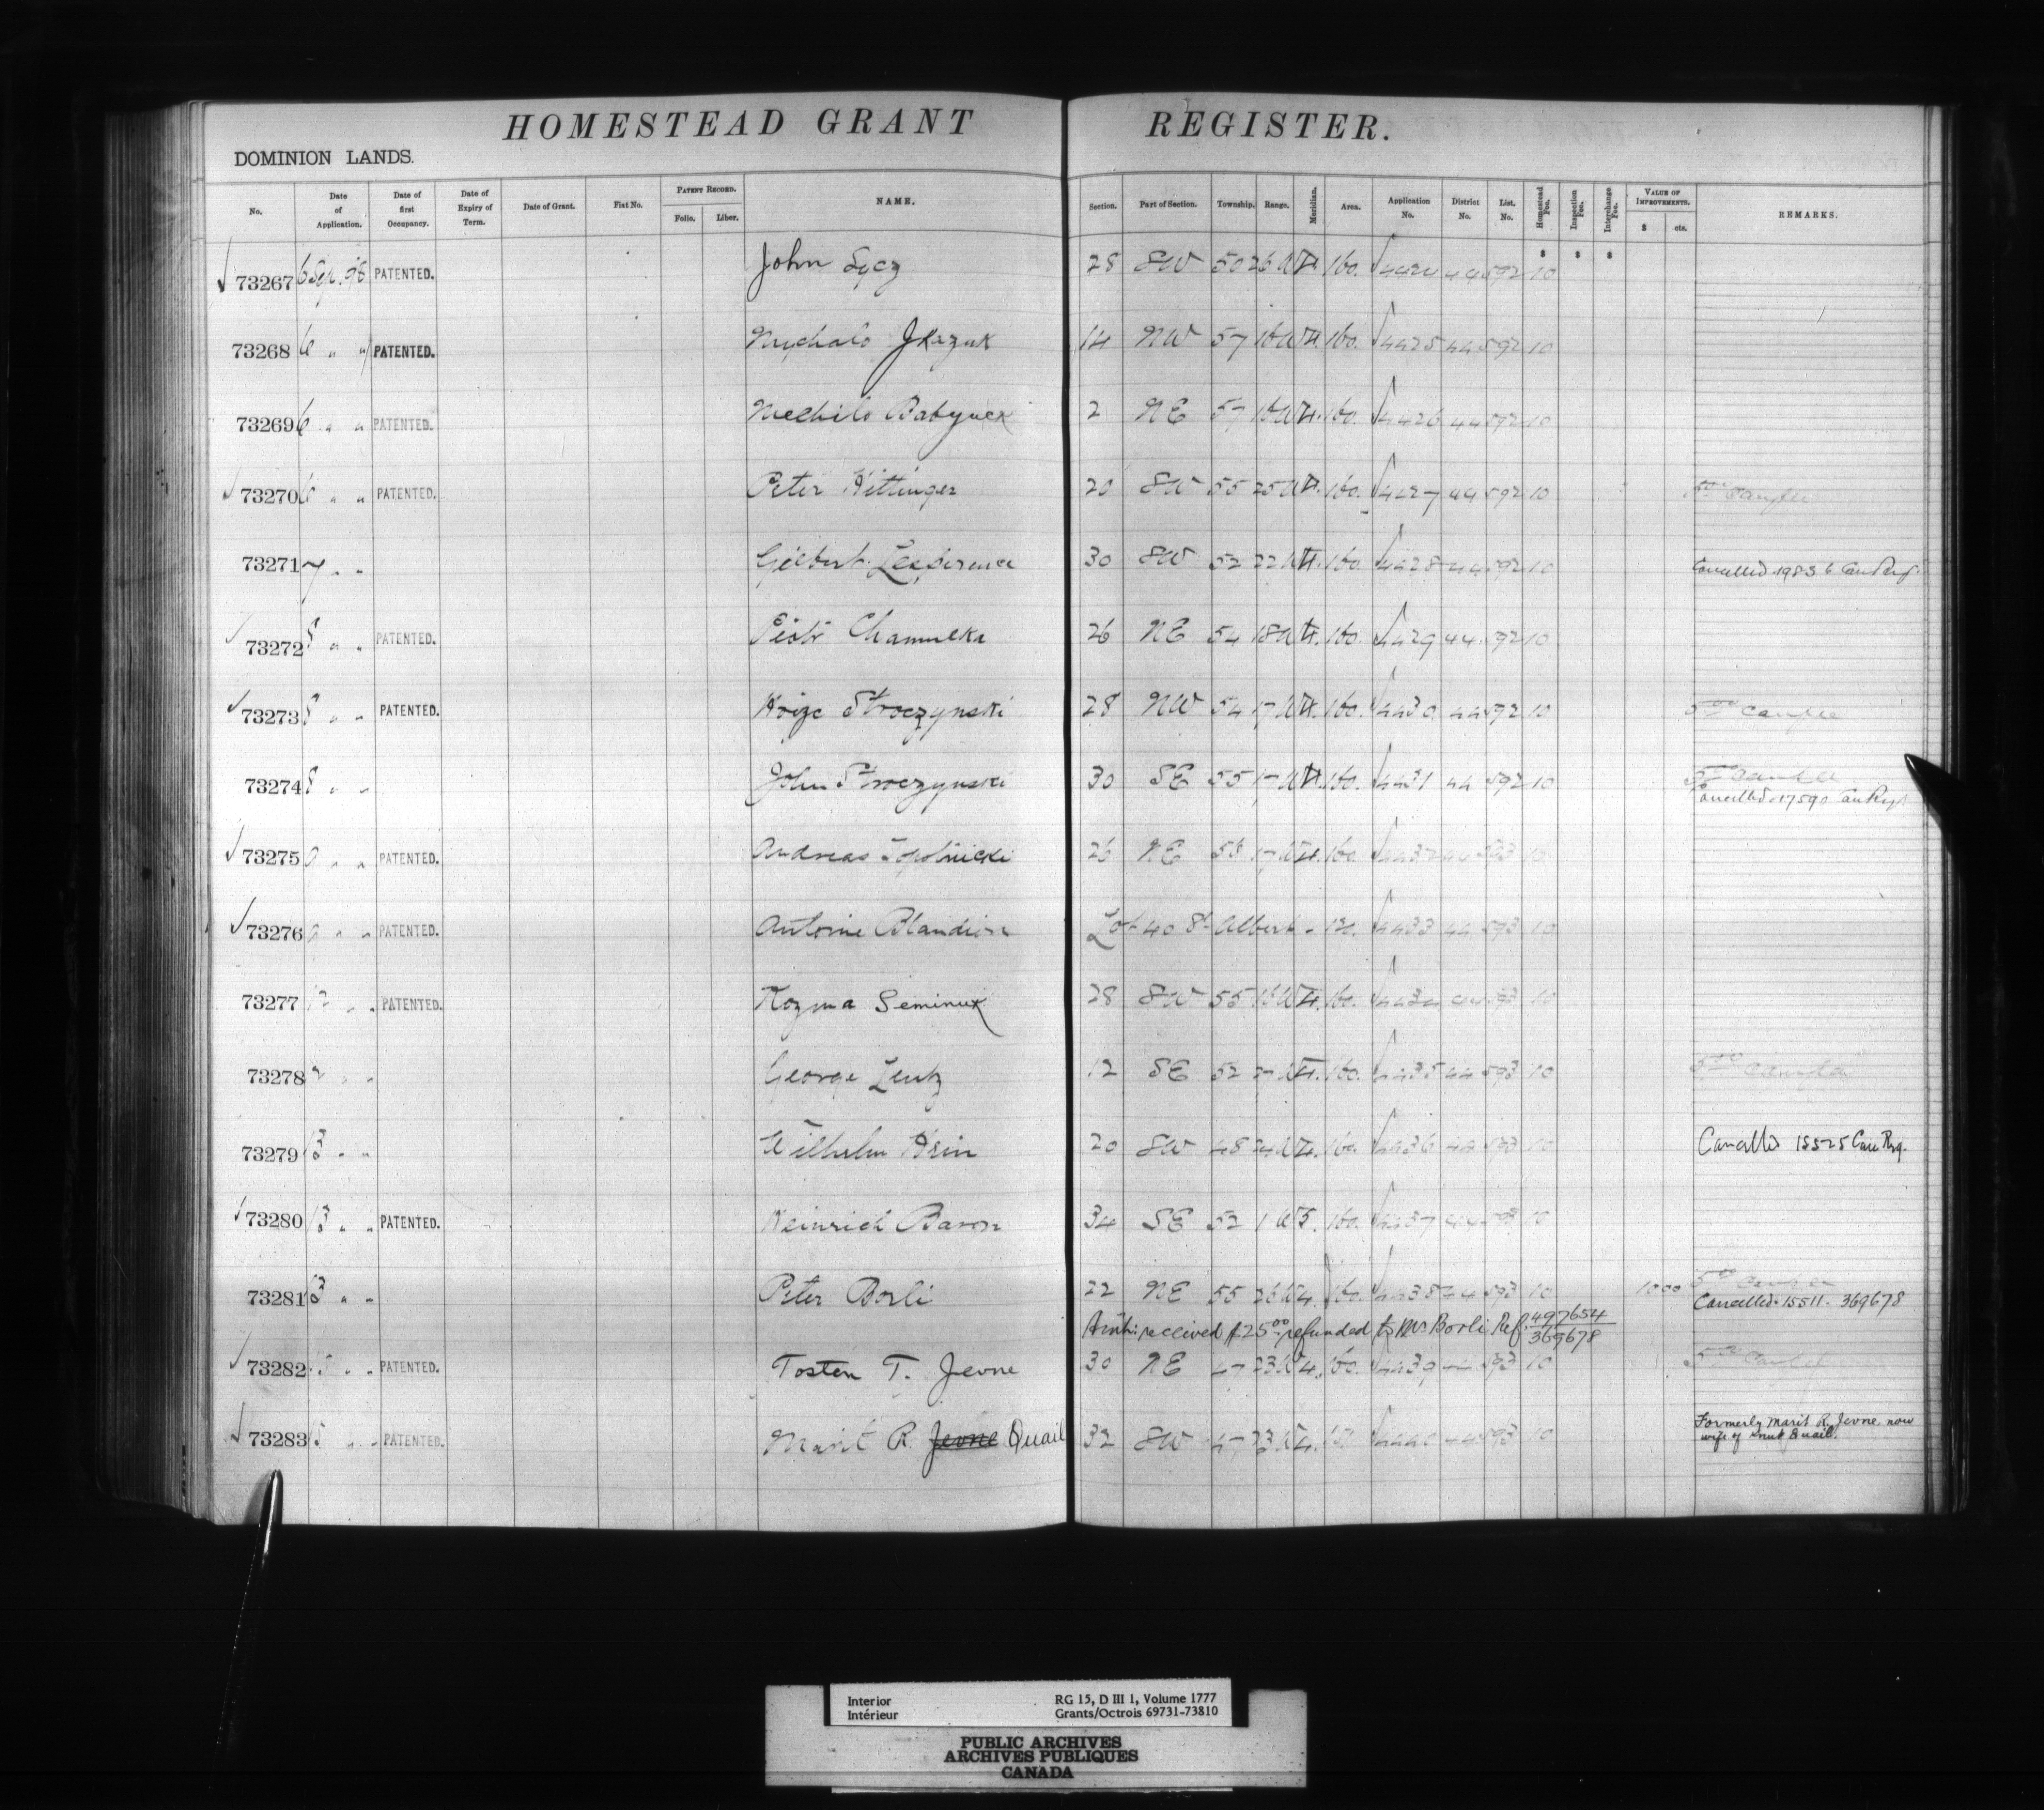 HOMESTEAD GRANT REGISTER.
DOMINION LANDS.
No. Date of Application. Date of first Occupancy. Date of Expiry of Term. Date of Grant. Fiat No. PATENT RECORD. Folio. Liber. NAME. Section. Part of Section. Township. Range. Meridian. Area. Application No. District No. List. No. Homestead Fee. Inspection Fee. Interchange Fee. VALUE OF IMPROVEMENTS. $ cts. REMARKS.
73267 6 Sep. 98 PATENTED. John Sycz 28 SW 50 26 W 4. 160. 4424 44 592 10
73268 6 " " PATENTED. 14 NW 57 16 W 4. 160. 4425 44 592 10
73269 6 " " PATENTED. 2 NE 57 16 W 4. 160. 4426 44 592 10
73270 6 " " PATENTED. Peter Hittinger 20 SW 55 25 W 4. 160. 4427 44 592 10
73271 7 " " Gilbert 30 SW 52 22 W 4. 160. 4428 44 592 10 Cancelled 19836 Can Reg.
73272 8 " " PATENTED. Piotr 26 NE 54 18 W 4. 160. 4429 44 592 10
73273 8 " " PATENTED. Stroczynski 28 NW 54 17 W 4. 160. 4430 44 592 10
73274 8 " " John Stroczynski 30 SE 55 17 W 4. 160. 4431 44 592 10
Cancelled 17590 Can Reg.
73275 9 " " PATENTED. Andreas Topolnicki 26 NE 17 W 4. 160. 4432 44 593 10
73276 9 " " PATENTED. Antoine Blandion Lot 40 St Albert - 120. 4433 44 593 10
73277 12 " " PATENTED. Kozma Seminuk 28 SW 55 W 4. 160. 4434 44 593 10
73278 " " George Lentz 12 SE 52 W 4. 160. 4435 44 593 10
73279 13 " " Wilhelm Hein 20 SW 48 24 W 4. 160. 4436 44 593 10 Cancelled 15525 Can Reg.
73280 13 " " PATENTED. Heinrich Baron 34 SE 52 1 W 5. 160. 4437 44 593 10
73281 13 " " Peter Borli 22 NE 55 26 W 4. 160. 4438 44 593 10 10 00
Cancelled. 15511. 369678
Amt: received $25.00 refunded to Mr Borli Ref. 497654
369678
73282 15 " " PATENTED. Tosten T. Jevne 30 NE 47 23 W 4. 160. 4439 44 593 10
73283 15 " " PATENTED. Marit R. Jevne Quail 32 SW 47 23 W 4. 4440 44 593 10 Formerly Marit R. Jevne now
wife of Knut Quail.
Interior
Intérieur
RG 15, D III 1, Volume 1777
Grants/Octrois 69731-73810
PUBLIC ARCHIVES
ARCHIVES PUBLIQUES
CANADA